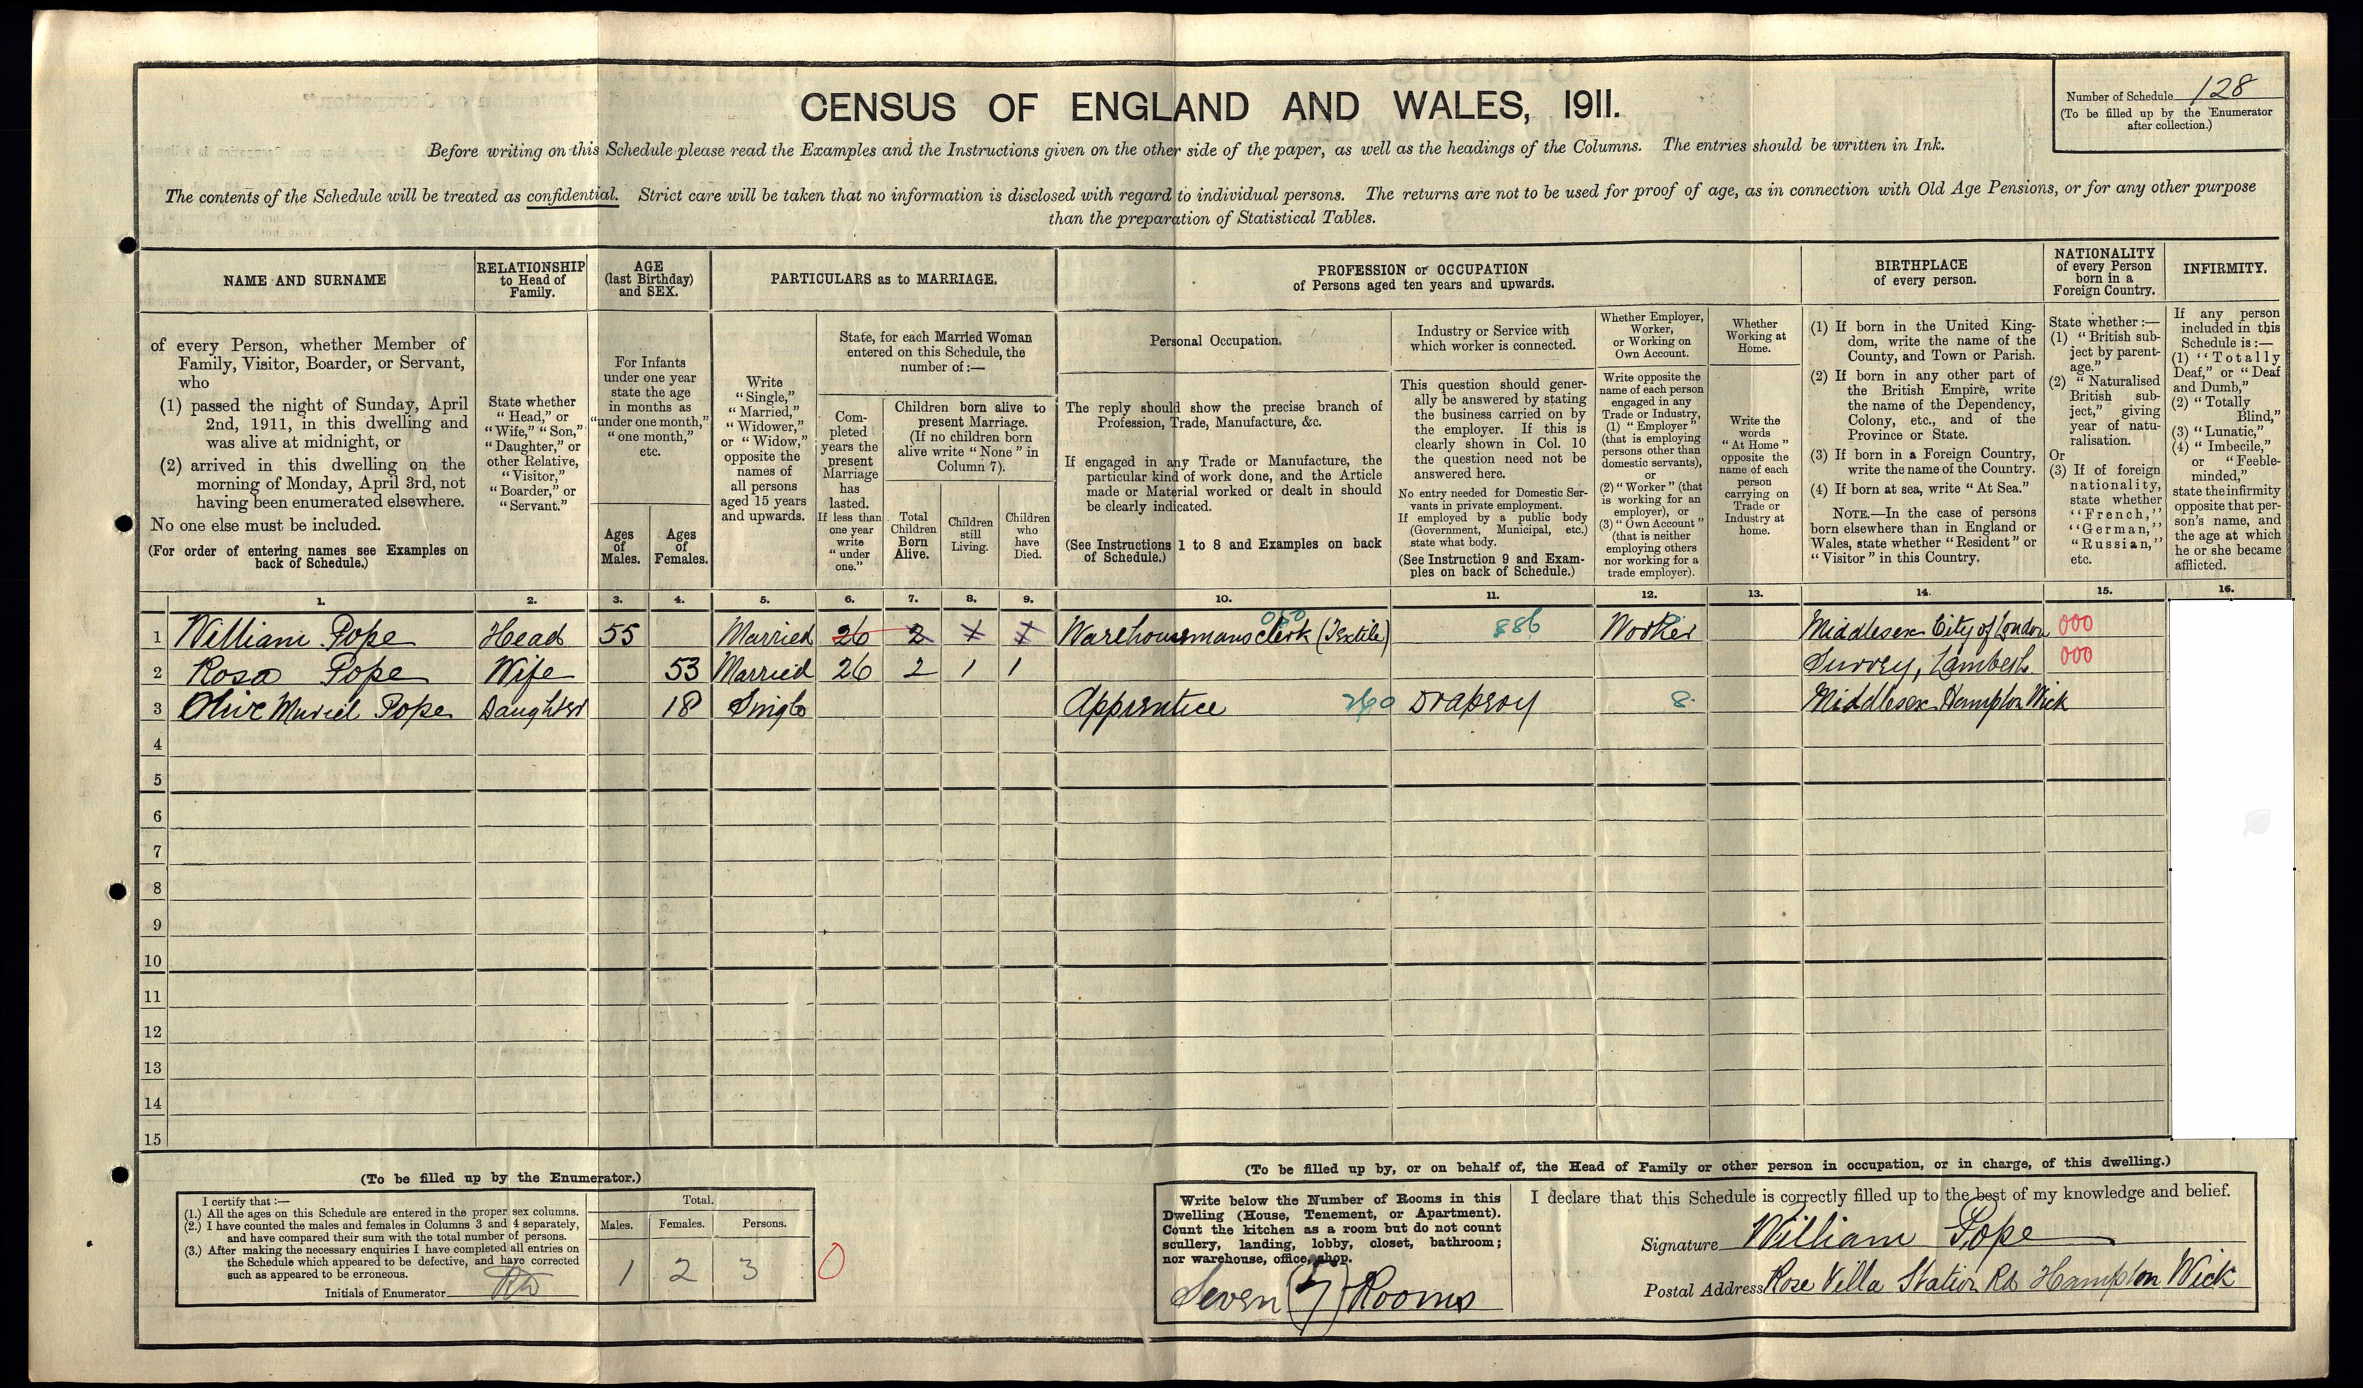 CENSUS OF ENGLAND AND WALES, 1911.
Number of Schedule 128
(To be filled up by the Enumerator
after collection.)
Before writing on this Schedule please read the Examples and the Instructions given on the other side of the paper, as well as the headings of the Columns. The entries should be written in Ink.
The contents of the Schedule will be treated as confidential. Strict care will be taken that no information is disclosed with regard to individual persons. The returns are not to be used for proof of age, as in connection with Old Age Pensions, or for any other purpose
than the preparation of Statistical Tables.
NAME AND SURNAME
of every Person, whether Member of
Family, Visitor, Boarder, or Servant,
who
(1) passed the night of Sunday, April
2nd, 1911, in this dwelling and
was alive at midnight, or
(2) arrived in this dwelling on the
morning of Monday, April 3rd, not
having been enumerated elsewhere.
No one else must be included.
(For order of entering names see Examples on
back of Schedule.)
RELATIONSHIP
to Head of
Family.
State whether
"Head," or
"Wife," "Son,"
"Daughter," or
other Relative,
"Visitor,"
"Boarder," or
"Servant."
AGE
(last Birthday)
and SEX.
For Infants
under one year
state the age
in months as
"under one month,"
"one month,"
etc.
Ages
of
Males.
Ages
of
Females.
PARTICULARS as to MARRIAGE.
Write
"Single,"
"Married,"
"Widower,"
or "Widow,"
opposite the
names of
all persons
aged 15 years
and upwards.
State, for each Married Woman
entered on this Schedule, the
number of:—
Com-
pleted
years the
present
Marriage
has
lasted.
If less than
one year
write
"under
one."
Children born alive to
present Marriage.
(If no children born
alive write "None" in
Column 7).
Total
Children
Born
Alive.
Children
still
Living.
Children
who
have
Died.
PROFESSION or OCCUPATION
of Persons aged ten years and upwards.
Personal Occupation.
The reply should show the precise branch of
Profession, Trade, Manufacture, &c.
If engaged in any Trade or Manufacture, the
particular kind of work done, and the Article
made or Material worked or dealt in should
be clearly indicated.
(See Instructions 1 to 8 and Examples on back
of Schedule.)
Industry or Service with
which worker is connected.
This question should gener-
ally be answered by stating
the business carried on by
the employer. If this is
clearly shown in Col. 10
the question need not be
answered here.
No entry needed for Domestic Ser-
vants in private employment.
If employed by a public body
(Government, Municipal, etc.)
state what body.
(See Instruction 9 and Exam-
ples on back of Schedule.)
Whether Employer,
Worker,
or Working on
Own Account.
Write opposite the
name of each person
engaged in any
Trade or Industry,
(1) "Employer"
(that is employing
persons other than
domestic servants),
or
(2) "Worker" (that
is working for an
employer), or
(3) "Own Account"
(that is neither
employing others
nor working for a
trade employer).
Whether
Working at
Home.
Write the
words
"At Home"
opposite the
name of each
person
carrying on
Trade or
Industry at
home.
BIRTHPLACE
of every person.
(1) If born in the United King-
dom, write the name of the
County, and Town or Parish.
(2) If born in any other part of
the British Empire, write
the name of the Dependency,
Colony, etc., and of the
Province or State.
(3) If born in a Foreign Country,
write the name of the Country.
(4) If born at sea, write "At Sea."
NOTE.—In the case of persons
born elsewhere than in England or
Wales, state whether "Resident" or
"Visitor" in this Country.
NATIONALITY
of every Person
born in a
Foreign Country.
State whether:—
(1) "British sub-
ject by parent-
age."
(2) "Naturalised
British sub-
ject," giving
year of natu-
ralisation.
Or
(3) If of foreign
nationality,
state whether
"French,"
"German,"
"Russian,"
etc.
INFIRMITY.
If any person
included in this
Schedule is:—
(1) "Totally
Deaf," or "Deaf
and Dumb,"
(2) "Totally
Blind,"
(3) "Lunatic,"
(4) "Imbecile,"
or "Feeble-
minded,"
state the infirmity
opposite that per-
son's name, and
the age at which
he or she became
afflicted.
1. 2. 3. 4. 5. 6. 7. 8. 9. 10. 11. 12. 13. 14. 15. 16.
050
1 William Pope Head 55 Married 26 2 1 1 Warehousemans clerk (Textile) 886 Worker Middlesex City of London 000
2 Rosa Pope Wife 53 Married 26 2 1 1 Surrey, Lambeth 000
3 Olive Muriel Pope Daughter 18 Single Apprentice 260 Drapery 8 Middlesex Hampton Wick
4
5
6
7
8
9
10
11
12
13
14
15
(To be filled up by the Enumerator.)
I certify that:—
(1.) All the ages on this Schedule are entered in the proper sex columns.
(2.) I have counted the males and females in Columns 3 and 4 separately,
and have compared their sum with the total number of persons.
(3.) After making the necessary enquiries I have completed all entries on
the Schedule which appeared to be defective, and have corrected
such as appeared to be erroneous.
Initials of Enumerator
Total.
Males. Females. Persons.
1 2 3 0
(To be filled up by, or on behalf of, the Head of Family or other person in occupation, or in charge, of this dwelling.)
Write below the Number of Rooms in this
Dwelling (House, Tenement, or Apartment).
Count the kitchen as a room but do not count
scullery, landing, lobby, closet, bathroom;
nor warehouse, office, shop.
Seven (7) Rooms
I declare that this Schedule is correctly filled up to the best of my knowledge and belief.
Signature William Pope
Postal Address Rose Villa Station Rd Hampton Wick